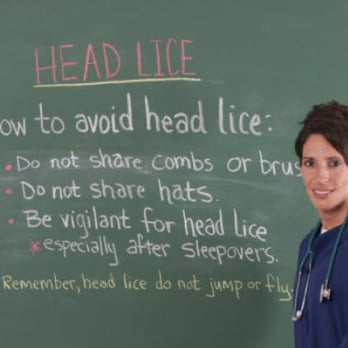 HEAD LICE
ow to avoid head lice:
• Do not share combs or brus
• Do not share hats.
• Be vigilant for head lice
* especially after sleepovers.
Remember, head lice do not jump or fly.